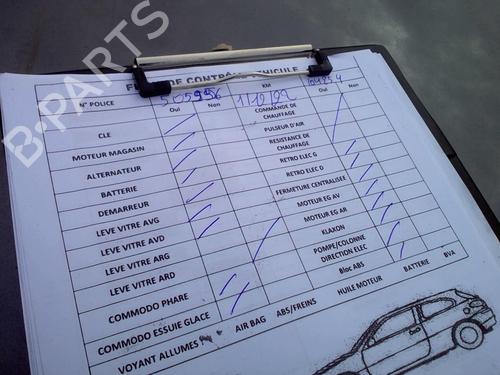 B-PARTS
FICHE DE CONTRÔLE VEHICULE
N° POLICE 505956 KM
Oui Non 1/12/22 Oui Non
CLE COMMANDE DE CHAUFFAGE
MOTEUR MAGASIN PULSEUR D'AIR
ALTERNATEUR RESISTANCE DE CHAUFFAGE
BATTERIE RETRO ELEC G
DEMARREUR RETRO ELEC D
LEVE VITRE AVG FERMETURE CENTRALISEE
LEVE VITRE AVD MOTEUR EG AV
LEVE VITRE ARG MOTEUR EG AR
LEVE VITRE ARD KLAXON
COMMODO PHARE POMPE/COLONNE DIRECTION ELEC
COMMODO ESSUIE GLACE Bloc ABS
VOYANT ALLUMES AIR BAG ABS/FREINS HUILE MOTEUR BATTERIE BVA